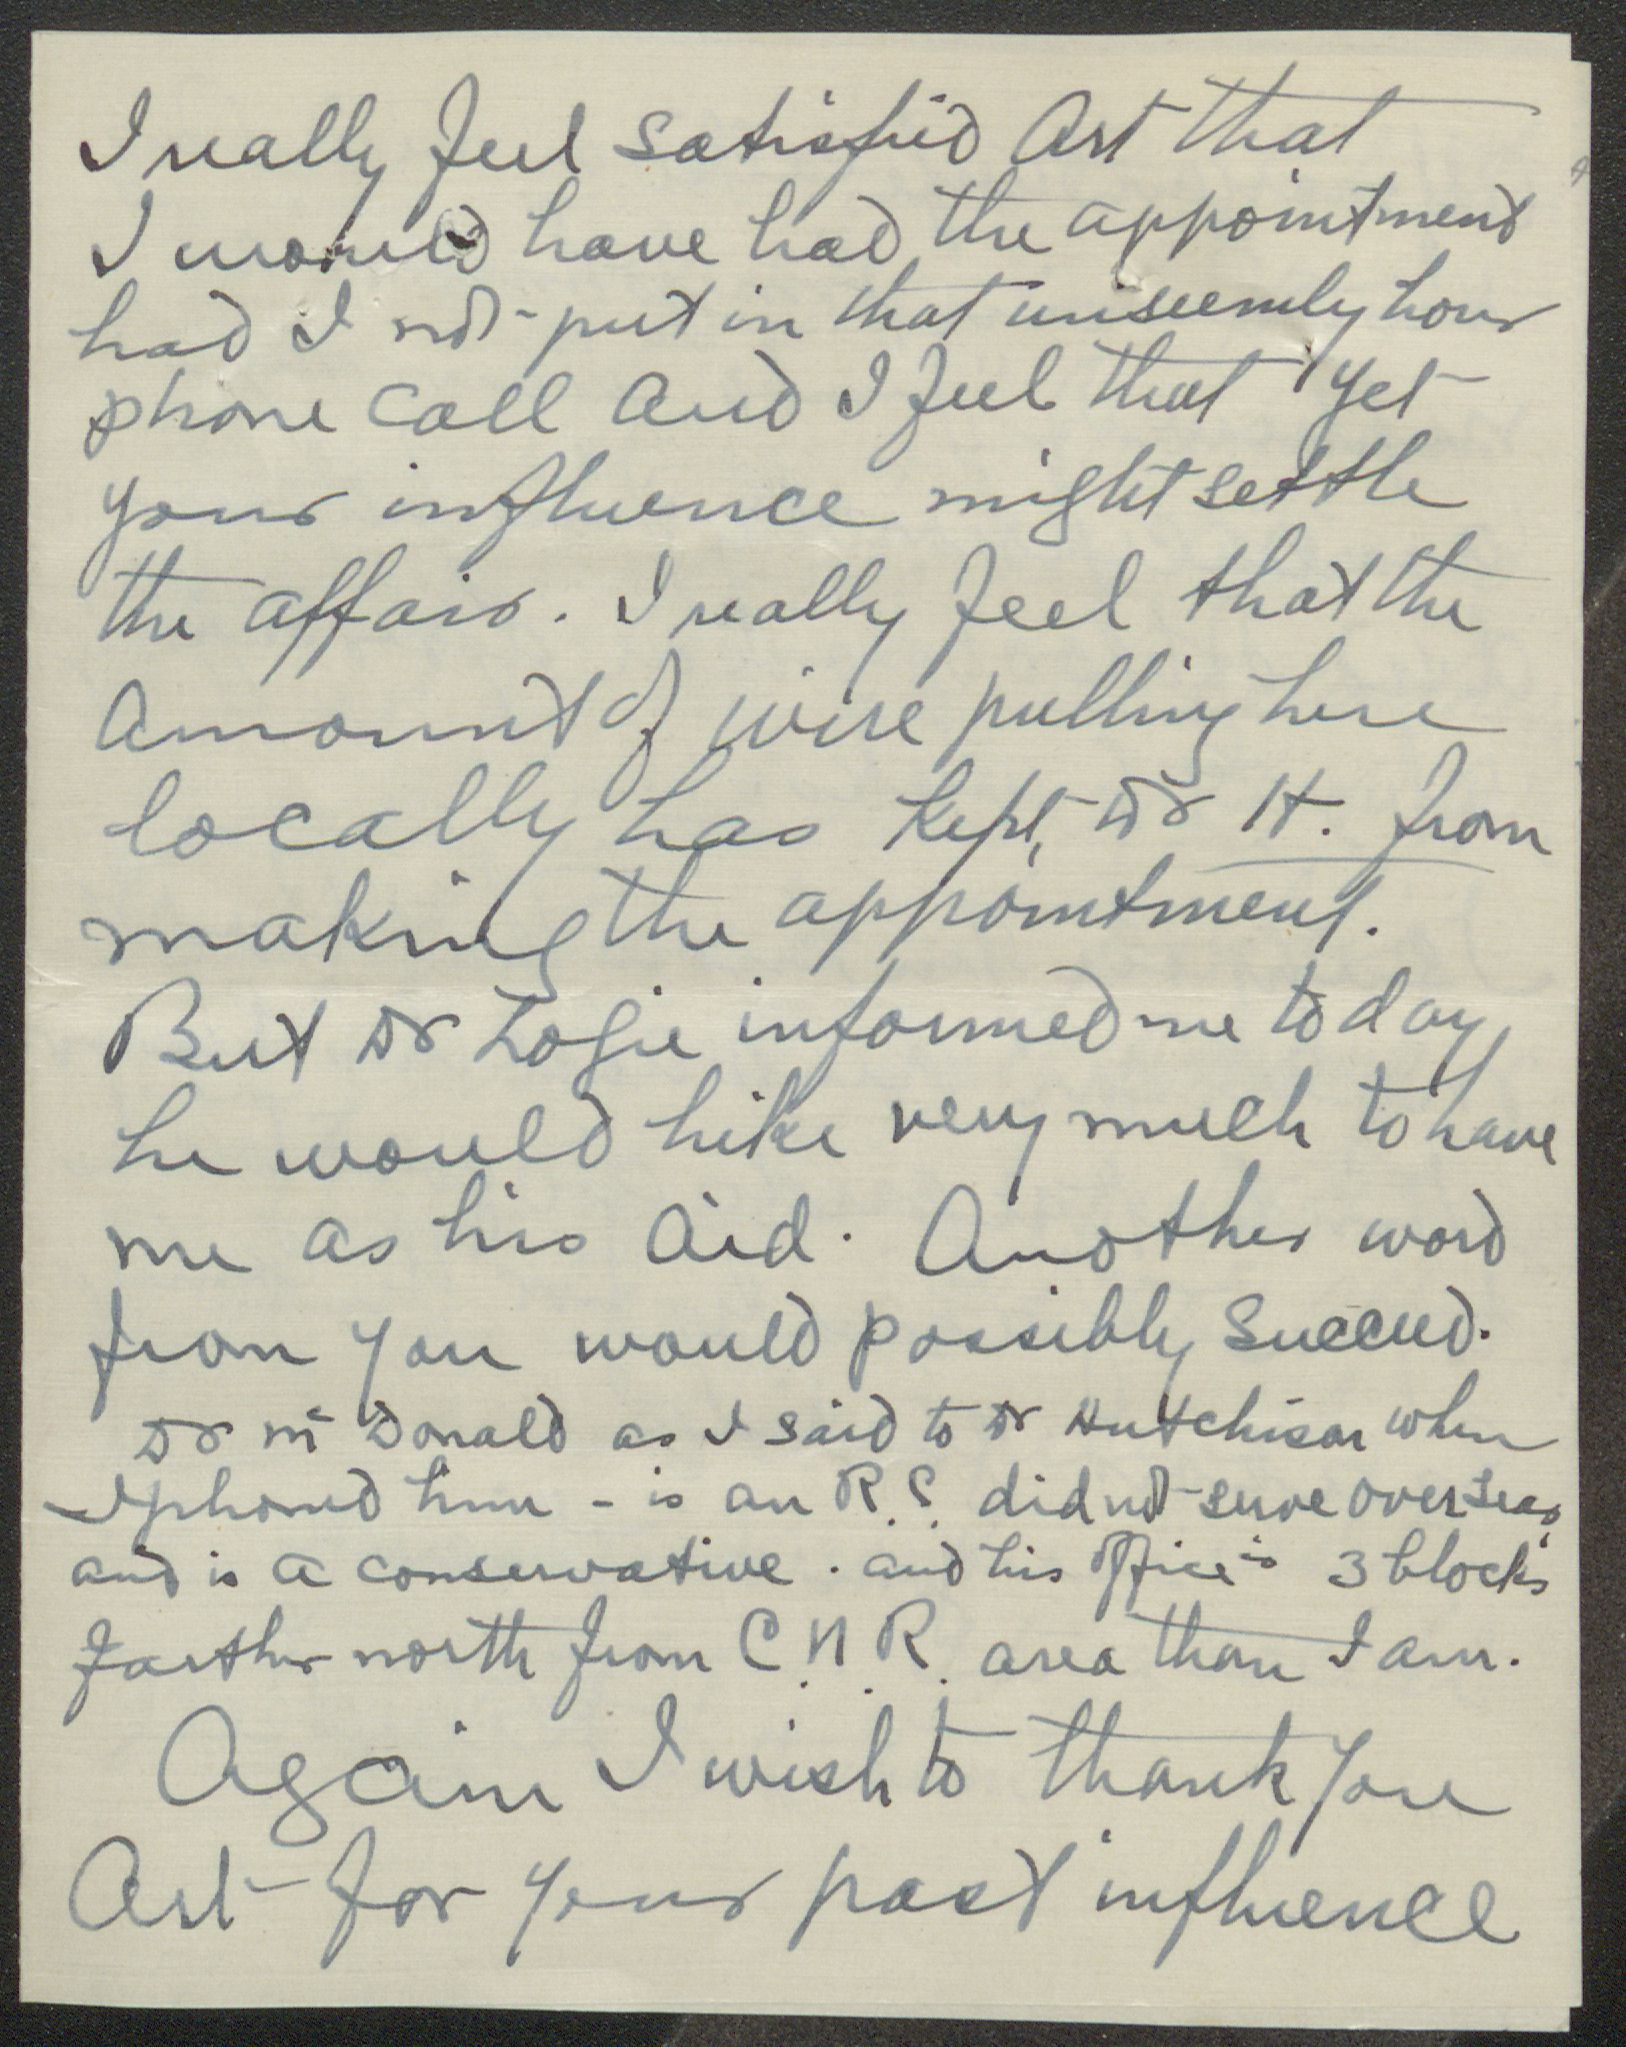 I really feel satisfied Art that
I would have had the appointment
had I not put in that unseemly hour
phone call and I feel that yet
your influence might settle
the affair. I really feel that the
amount of wire pulling here
locally has kept Dr H. from
making the appointment.
But Dr Logie informed me today
he would like very much to have
me as his aid. Another word
from you would possibly succeed.
Dr Mc Donald as I said to Dr Hutchison when
I phoned him - is an R.C. did not serve overseas
and is a conservative. and his office is 3 blocks
farther north from C.N.R. area than I am.
Again I wish to thank you
Art for your past influence